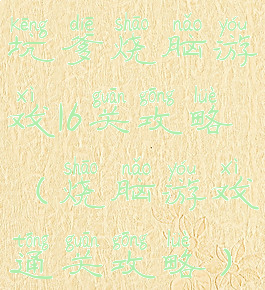 kēng diē shāo nǎo yóu
坑爹烧脑游
xì guān gōng lüè
戏16关攻略
shāo nǎo yóu xì
(烧脑游戏
tōng guān gōng lüè
通关攻略)